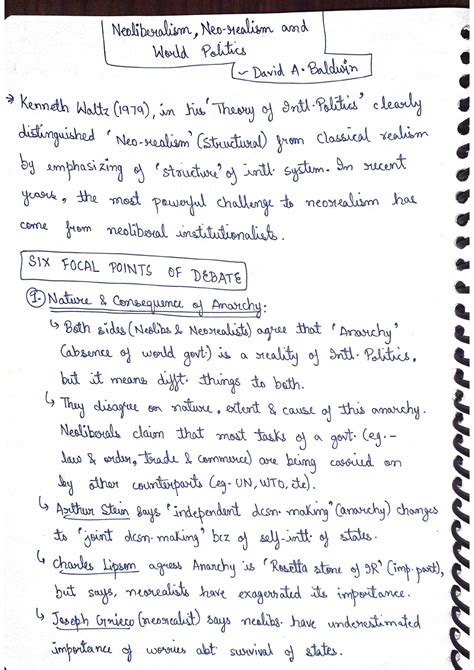 Neoliberalism, Neo-realism and
World Politics
~ David A. Baldwin
→ Kenneth Waltz (1979), in his 'Theory of Intl. Politics' clearly
distinguished 'Neo-realism' (structural) from Classical realism
by emphasizing of 'structure' of intl. system. In recent
years, the most powerful challenge to neorealism has
come from neoliberal institutionalists.
SIX FOCAL POINTS OF DEBATE
1. Nature & Consequence of Anarchy:
↳ Both sides (Neolibs & Neorealists) agree that 'Anarchy'
(absence of world govt.) is a reality of Intl. Politics,
but it means difft. things to both.
↳ They disagree on nature, extent & cause of this anarchy.
Neoliberals claim that most tasks of a govt. (eg.-
law & order, trade & commerce) are being carried on
by other counterparts (eg- UN, WTO, etc).
↳ Arthur Stein says 'independent dcsn-making' (anarchy) changes
to 'joint dcsn-making' bcz of self-intt. of states.
↳ Charles Lipson agress Anarchy is 'Rosetta stone of IR' (imp. part),
but says, neorealists have exagerrated its importance.
↳ Joseph Grieco (neorealist) says neolibs. have underestimated
importance of worries abt survival of states.